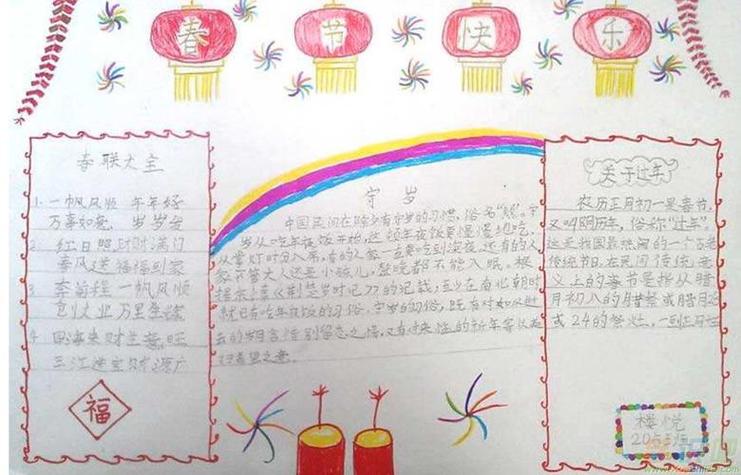 春节快乐
春联大全
1. 一帆风顺 年年好
万事如意 岁岁发
2. 红日照财满门
春风送福福到家
3. 奔前程 一帆风顺
创大业 万里
4. 四海来财生意旺
三江进宝财源广
福
守岁
中国民间在除夕有守岁的习惯，俗名“熬”。守
岁从吃年夜饭开始，这顿年夜饭要慢慢地吃，
从掌灯时分入席，有的人家一直要吃到深夜。还有的人
家不管大人还是小孩儿，整晚都不能入眠。根
据宗《荆楚岁时记》的记载，至少在南北朝时
就已有吃年夜饭的习俗。守岁的习俗，既有对如水逝
去的岁月含惜别留恋之情，又有对来临的新年寄以美
好希望之意。
关于过年
农历正月初一是春节，
又叫阴历年，俗称“过年”。
这是我国最的一个古老
传统节日。在民间传统意
义上的春节是指从腊
月初八的腊祭或腊月23
或24的祭灶，一到正月
楼悦
205班